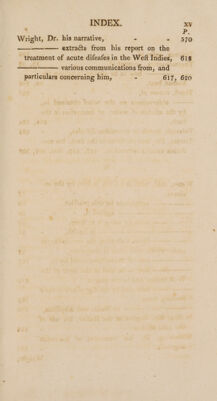 INDEX. xv
P.
Wright, Dr. his narrative, - - 570
——— extracts from his report on the
treatment of acute diseases in the West Indies, 618
——— various communications from, and
particulars concerning him, - 617, 620